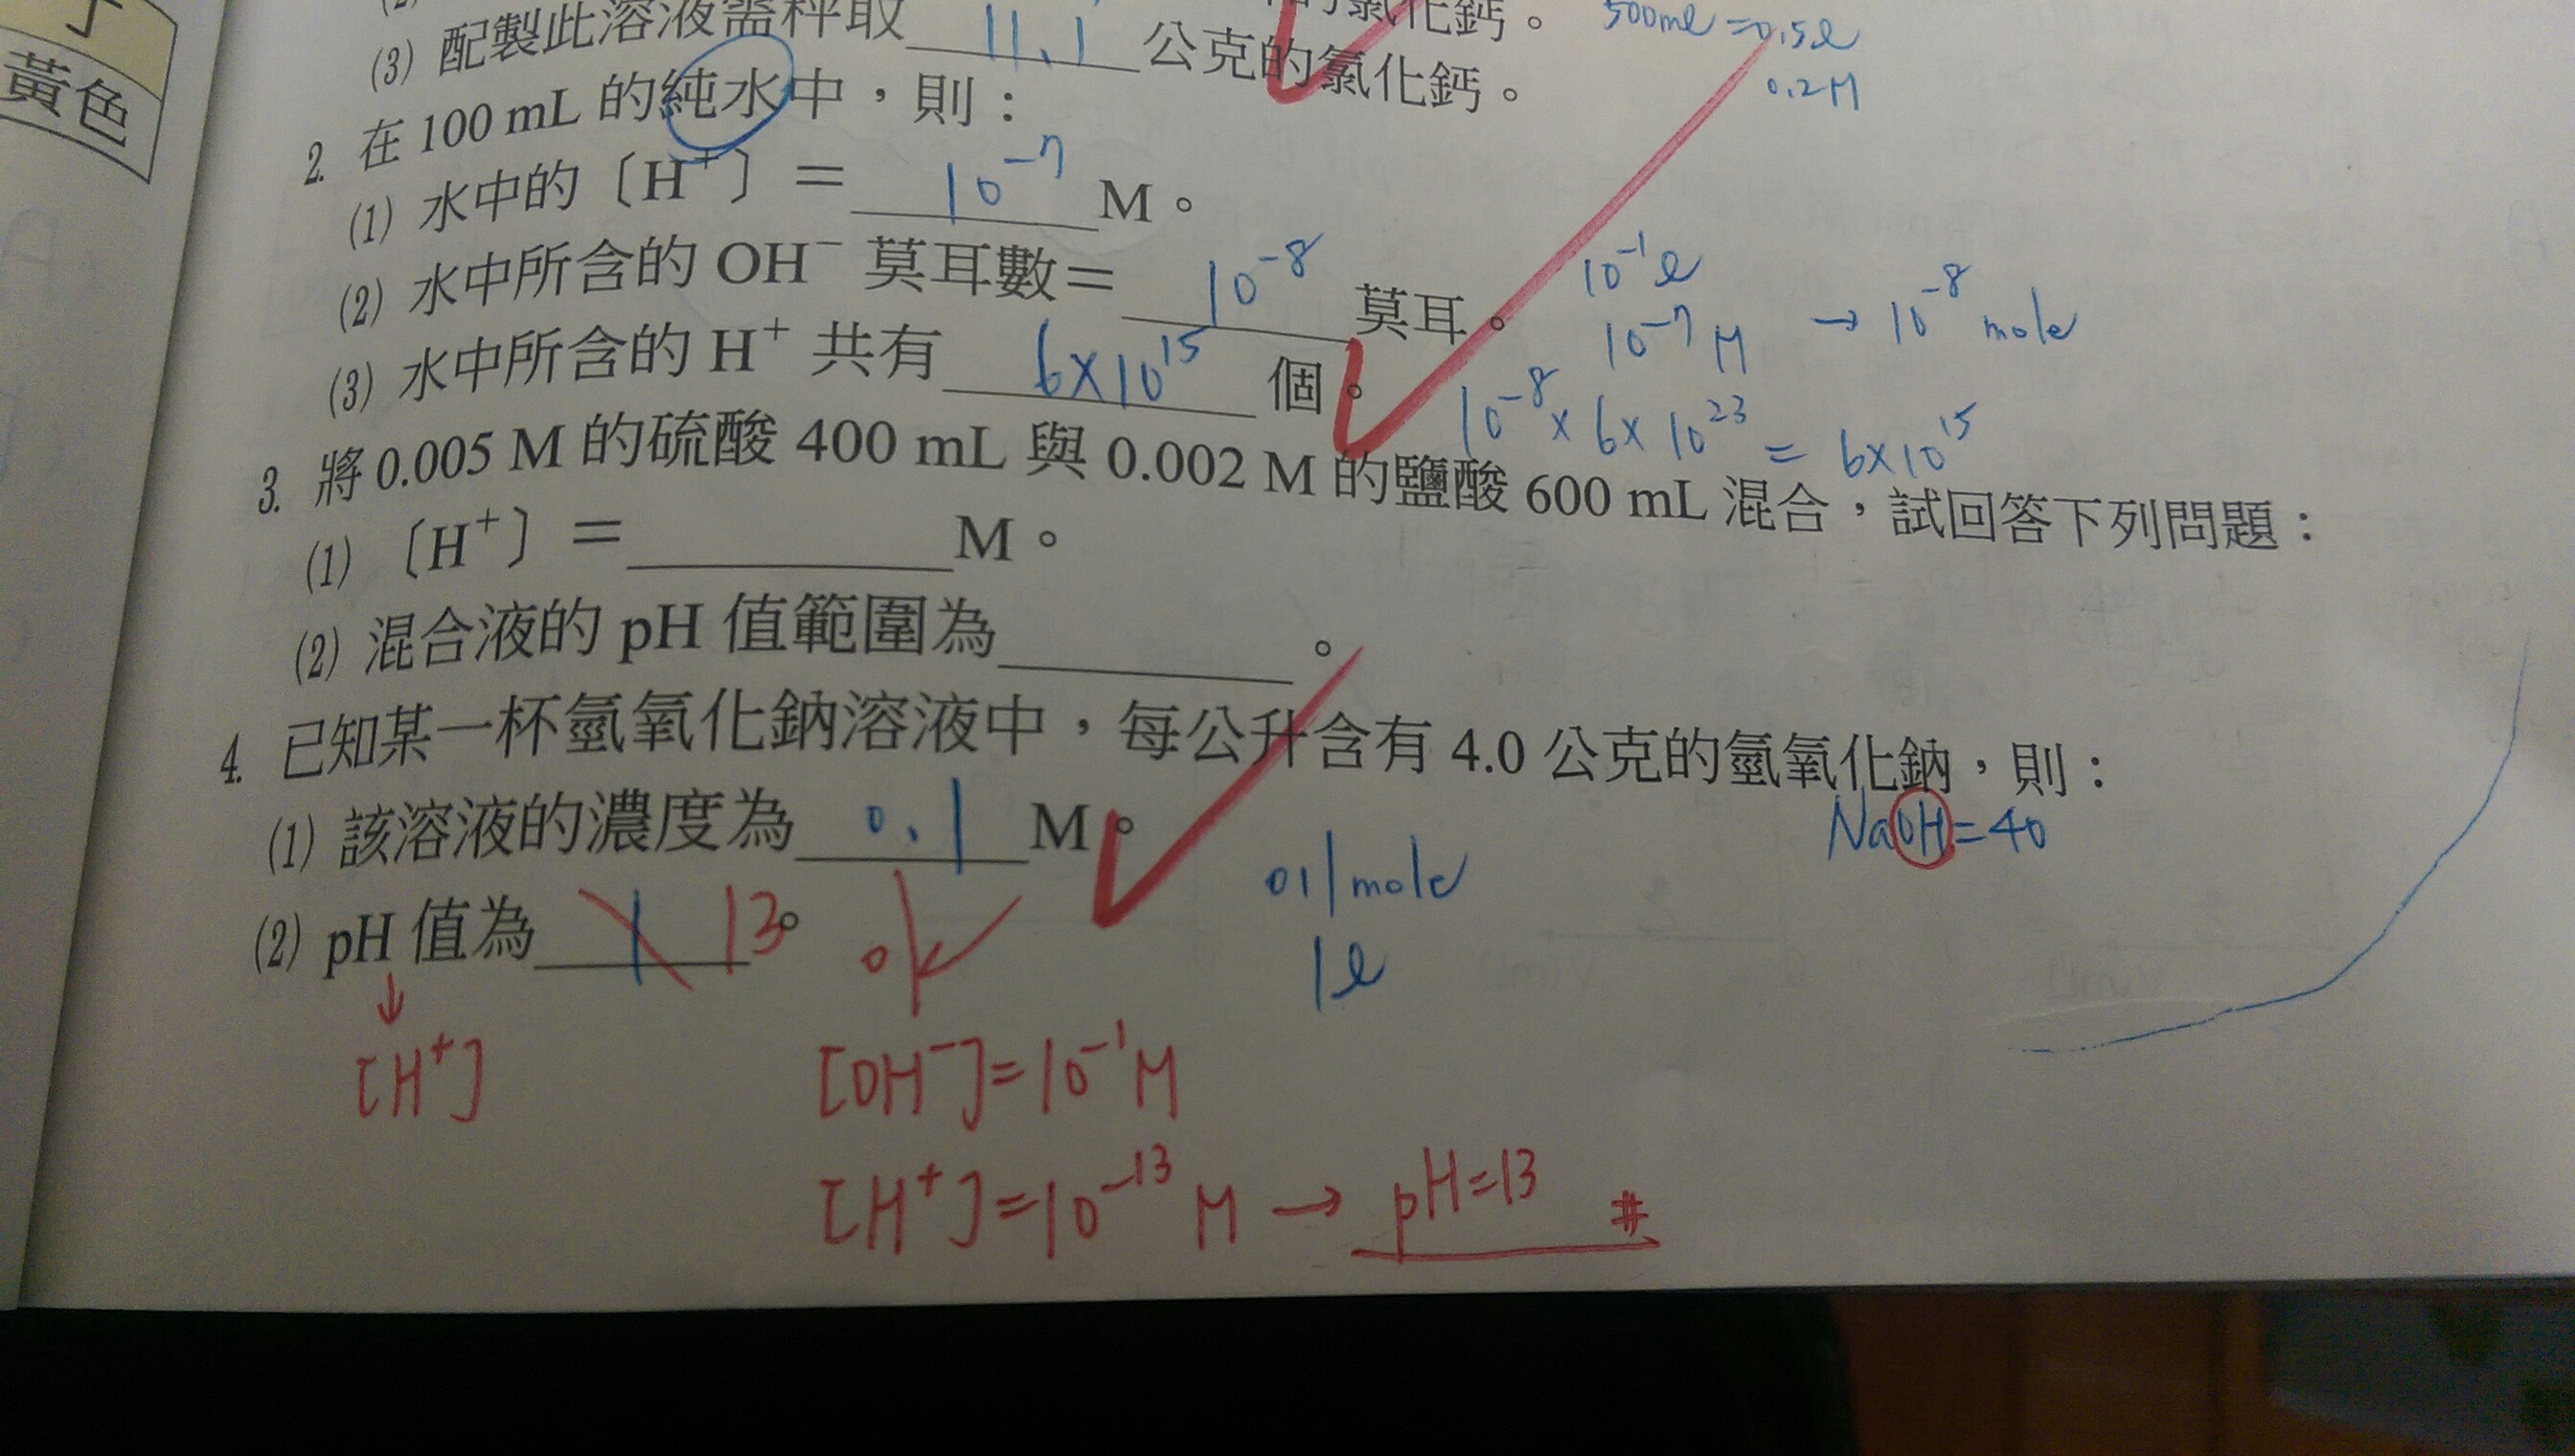 黃色
(3) 配製此溶液需秤取 11.1 公克的氯化鈣。
的氯化鈣。
500ml = 0.5l
0.2M
2. 在 100 mL 的純水中，則：
(1) 水中的〔H⁺〕＝ 10⁻⁷ M。
(2) 水中所含的 OH⁻ 莫耳數＝ 10⁻⁸ 莫耳。
10⁻¹ l
10⁻⁷ M → 10⁻⁸ mole
(3) 水中所含的 H⁺ 共有 6×10¹⁵ 個。
10⁻⁸ × 6 × 10²³ = 6×10¹⁵
3. 將 0.005 M 的硫酸 400 mL 與 0.002 M 的鹽酸 600 mL 混合，試回答下列問題：
(1) 〔H⁺〕＝ M。
(2) 混合液的 pH 值範圍為 。
4. 已知某一杯氫氧化鈉溶液中，每公升含有 4.0 公克的氫氧化鈉，則：
NaOH=40
(1) 該溶液的濃度為 0.1 M。
01 mole
1l
(2) pH 值為 1 13。
ok
[H⁺]
[OH⁻]=10⁻¹M
[H⁺]=10⁻¹³ M → pH=13 #